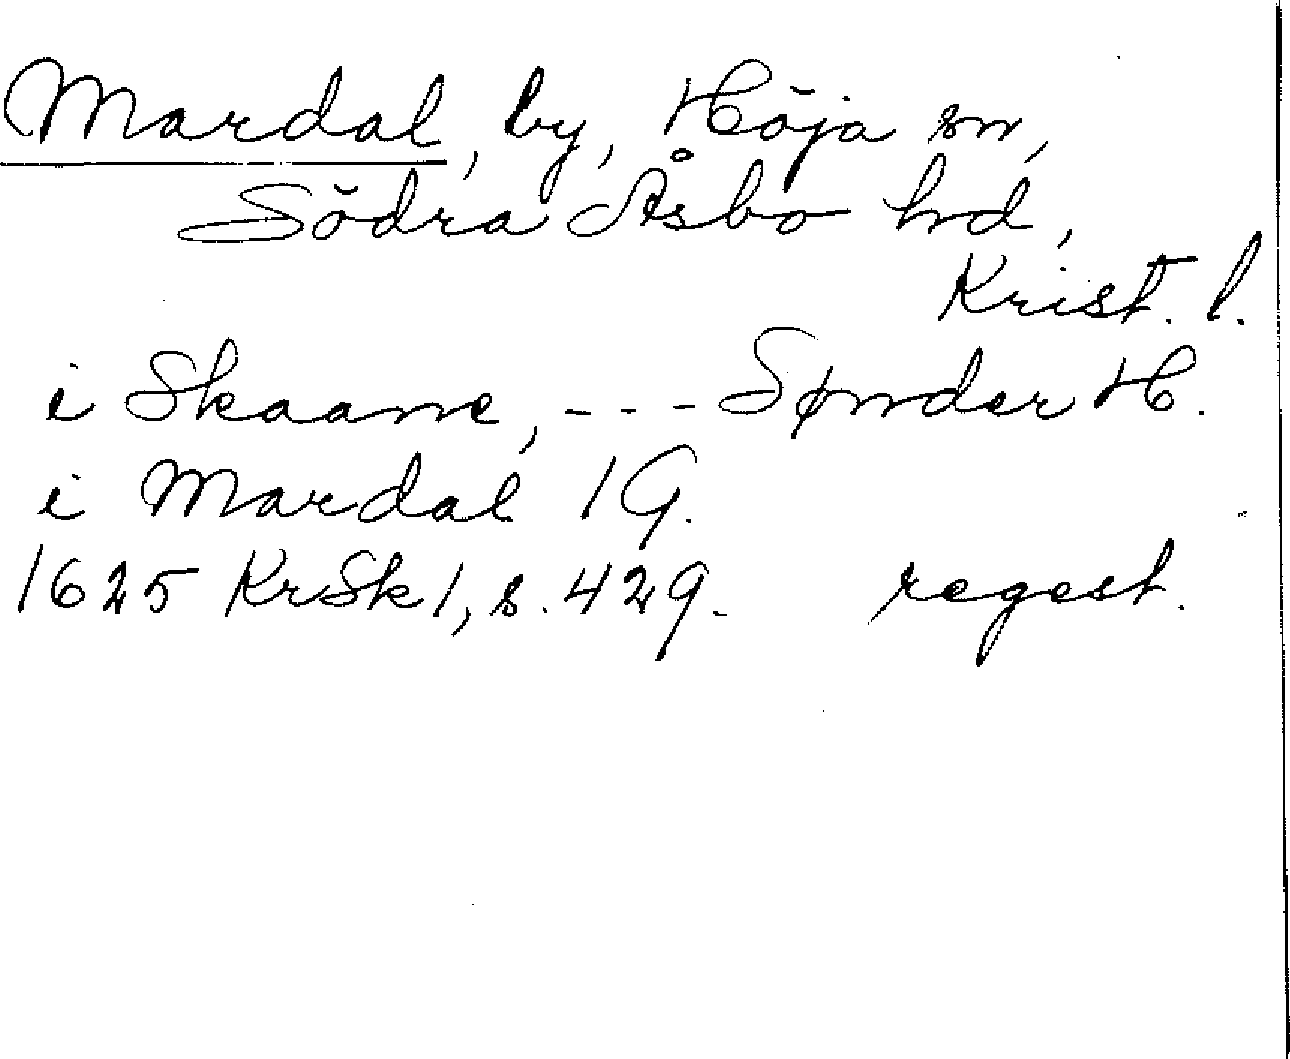 Mardal, by, Höja sn,
Södra Åsbo hd,
Krist. l.
i Skaane, --- Sønder H.
i Mardal 1 G.
1625 KrSk 1, s. 429. regest.